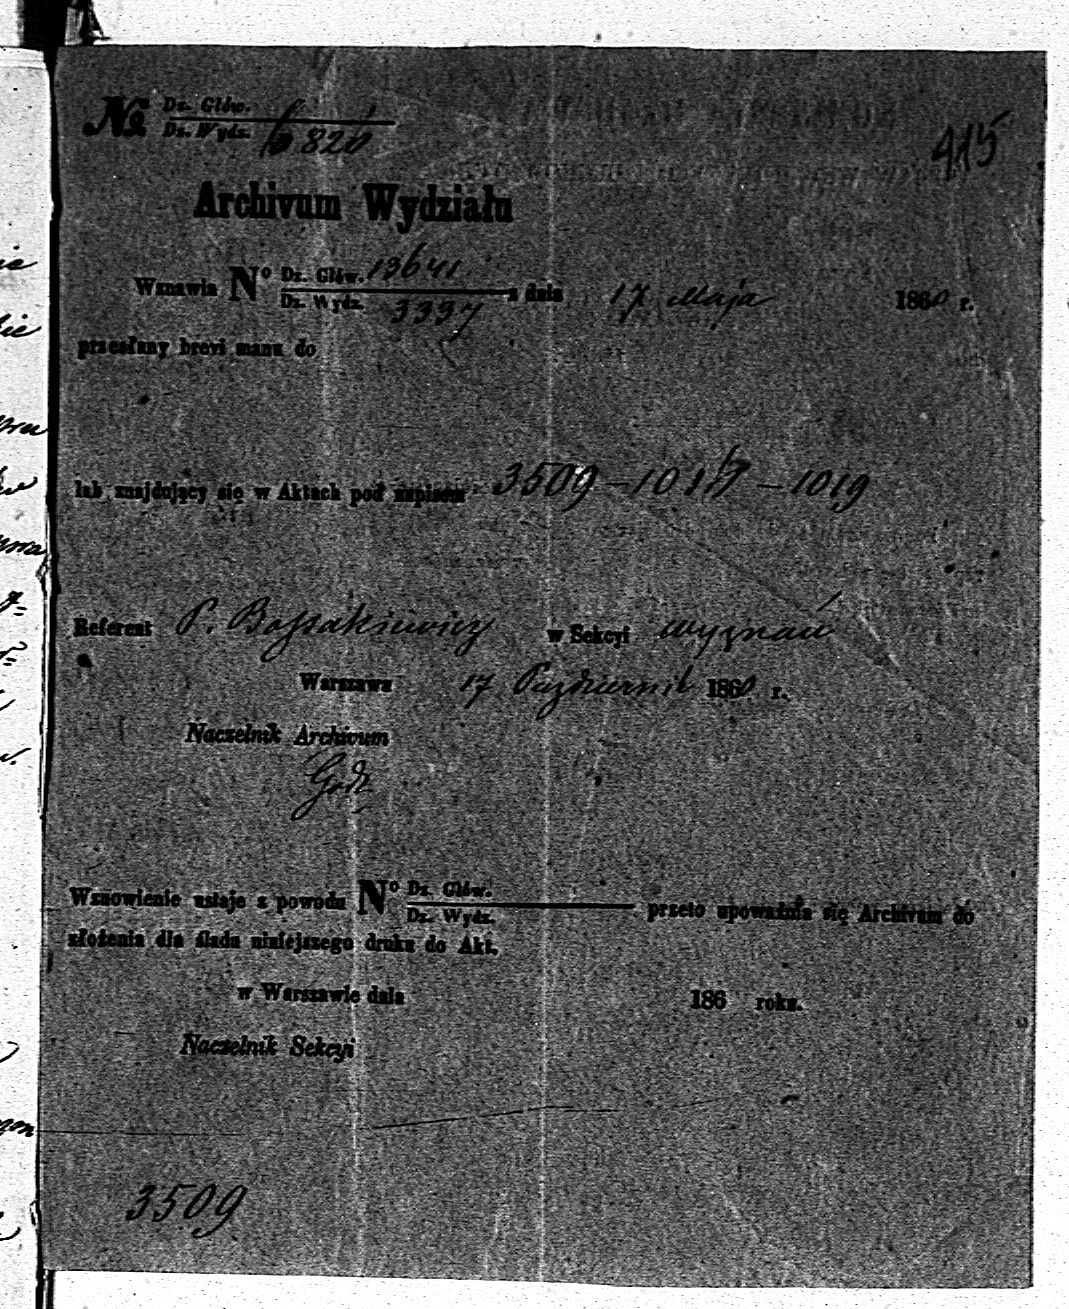 № Dz. Głów.
Dz. Wydz. 6826
415
Archivum Wydziału
Wznawia Nº Dz. Głów. 13641
Dz. Wydz. 3337 z dnia 17 Maja 1860 r.
przesłany brevi manu do
lub znajdujący się w Aktach pod napisem 3509 – 1017 – 1019
Referent P. Bossakiewicz w Sekcyi wyznań
Warszawa 17 Październik 1860 r.
Naczelnik Archivum
Wznowienie ustaje z powodu Nº Dz. Głów.
Dz. Wydz. przeto upoważnia się Archivum do
złożenia dla śladu niniejszego druku do Akt.
w Warszawie dnia 186 roku.
Naczelnik Sekcyi
3509